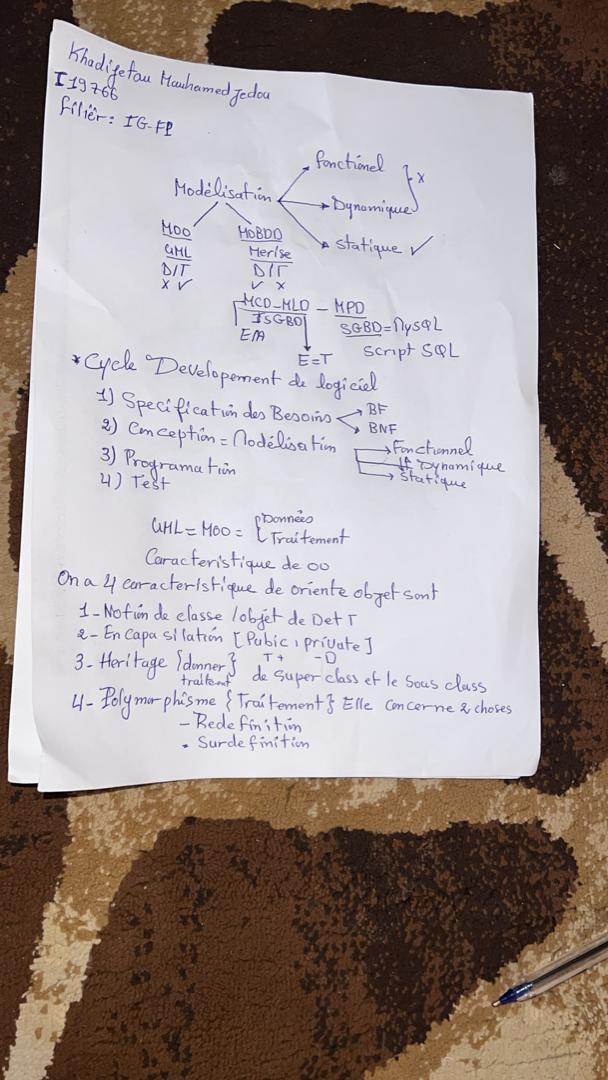 Khadijetou Mouhamed Jedou
I19766
filièr : IG-FP
fonctionel
} x
Modélisation
Dynamique
statique ✓
MOO MOBDD
UML Merise
D/T D/T
x ✓ ✓ x
MCD-MLD - MPD
ISGBD SGBD=MySQL
E/A Script SQL
E=T
* Cycle Developement de logiciel
1) Specification des Besoins BF
BNF
2) Conception = Modélisation Fonctionnel
Dynamique
3) Programation Statique
4) Test
UML = MOO = { Données
Traitement
Caracteristique de OO
On a 4 caracteristique de oriente objet sont
1- Notion de classe /objet de D et T
2- En capa silation [Pubic, private]
T + - D
3- Heritage {donner} de super class et le sous class
traitemt
4- Polymorphisme {Traitement} Elle concerne 2 choses
- Redefinition
- Surdefinition